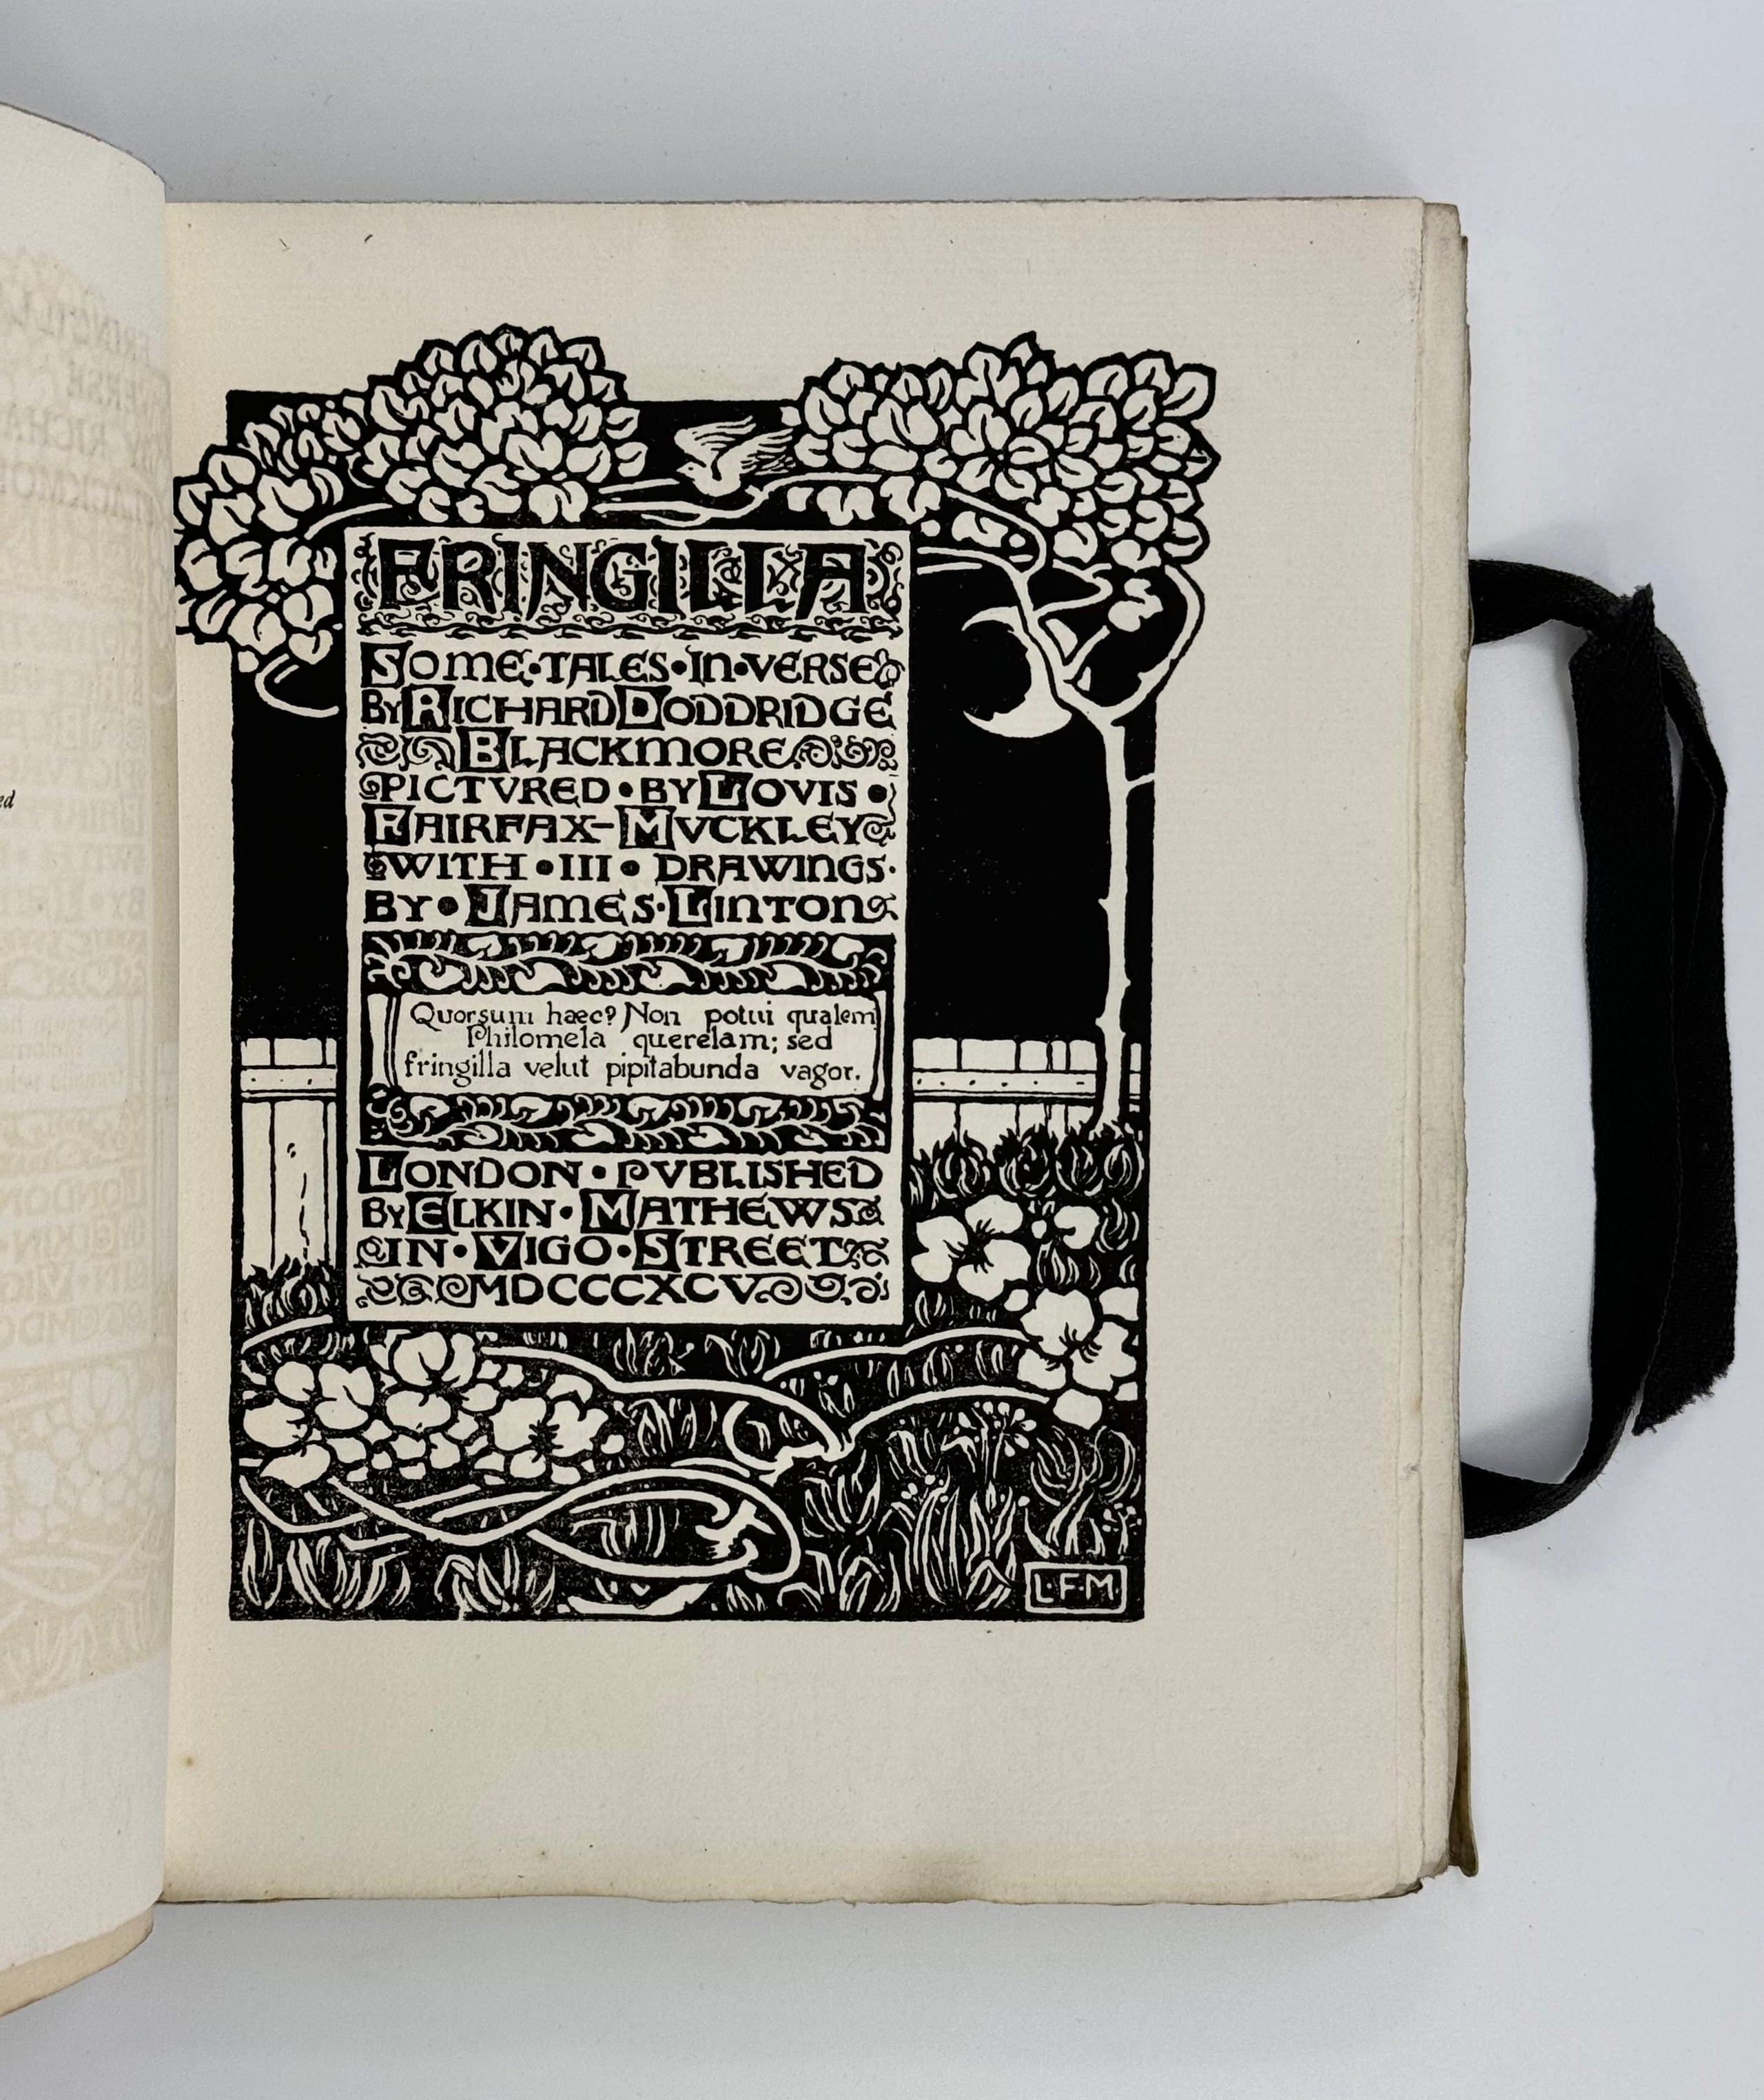 FRINGILLA
SOME·TALES·IN·VERSE
BY RICHARD DODDRIDGE
BLACKMORE
PICTVRED·BY LOVIS·
FAIRFAX-MVCKLEY
WITH·III·DRAWINGS·
BY·JAMES·LINTON
Quorsum hæc? Non potui qualem
Philomela querelam; sed
fringilla velut pipitabunda vagor.
LONDON·PVBLISHED
BY ELKIN·MATHEWS
IN·VIGO·STREET
MDCCCXCV
L·F·M